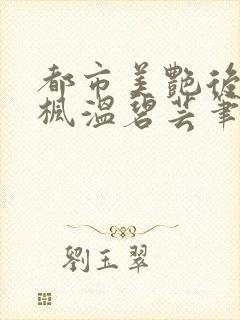 都市美艷後
楓溫碧芸筆
劉玉翠